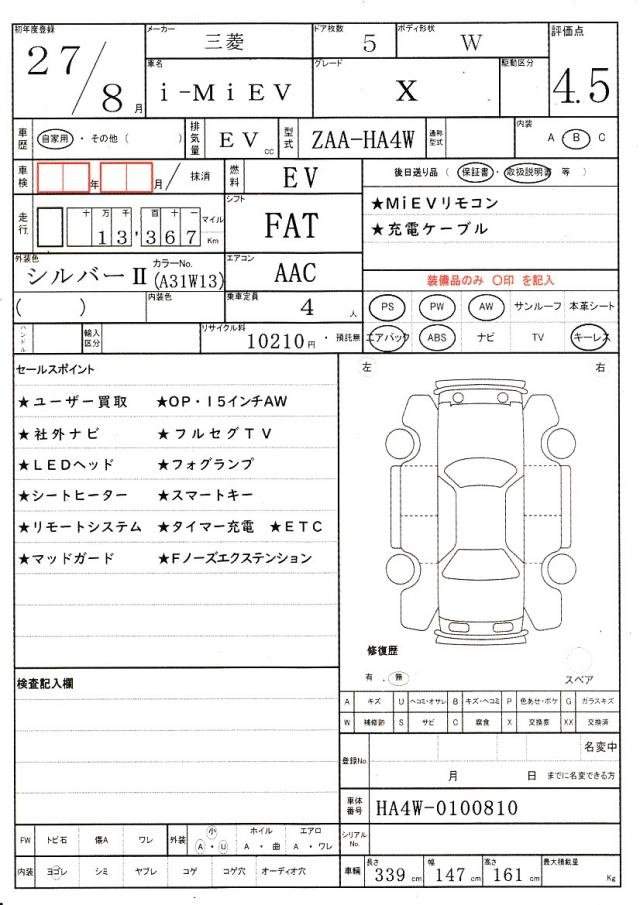 初年度登録 27/8月
メーカー 三菱 ドア枚数 5 ボディ形状 W 評価点
車名 i-MiEV グレード X 駆動区分 4.5
車歴 自家用・その他( ) 排気量 EV cc 型式 ZAA-HA4W 通称型式 内装 A B C
車検 年 月/ 抹消 燃料 EV 後日送り品(保証書・取扱説明書 等)
走行 十万千百十一 13,367 マイル Km シフト FAT ★MiEVリモコン
★充電ケーブル
外装色 シルバーII カラーNo. (A31W13) エアコン AAC 装備品のみ 〇印 を記入
( ) 内装色 乗車定員 4人 PS PW AW サンルーフ 本革シート
ハンドル 輸入区分 リサイクル料 10210円・預託無 エアバック ABS ナビ TV キーレス
セールスポイント 左 右
★ユーザー買取 ★OP・15インチAW
★社外ナビ ★フルセグTV
★LEDヘッド ★フォグランプ
★シートヒーター ★スマートキー
★リモートシステム ★タイマー充電 ★ETC
★マッドガード ★Fノーズエクステンション
修復歴
有・無 スペア
検査記入欄
A キズ U ヘコミ・オサレ B キズ・ヘコミ P 色あせ・ボケ G ガラスキズ
W 補修跡 S サビ C 腐食 X 交換要 XX 交換済
登録No. 名変中
月 日 までに名変できる方
車体番号 HA4W-0100810
シリアルNo.
FW トビ石 傷A ワレ 外装 小 A・U ホイル A・曲 エアロ A・ワレ
内装 ヨゴレ シミ ヤブレ コゲ コゲ穴 オーディオ穴
車輌 長さ 339cm 幅 147cm 高さ 161cm 最大積載量 Kg